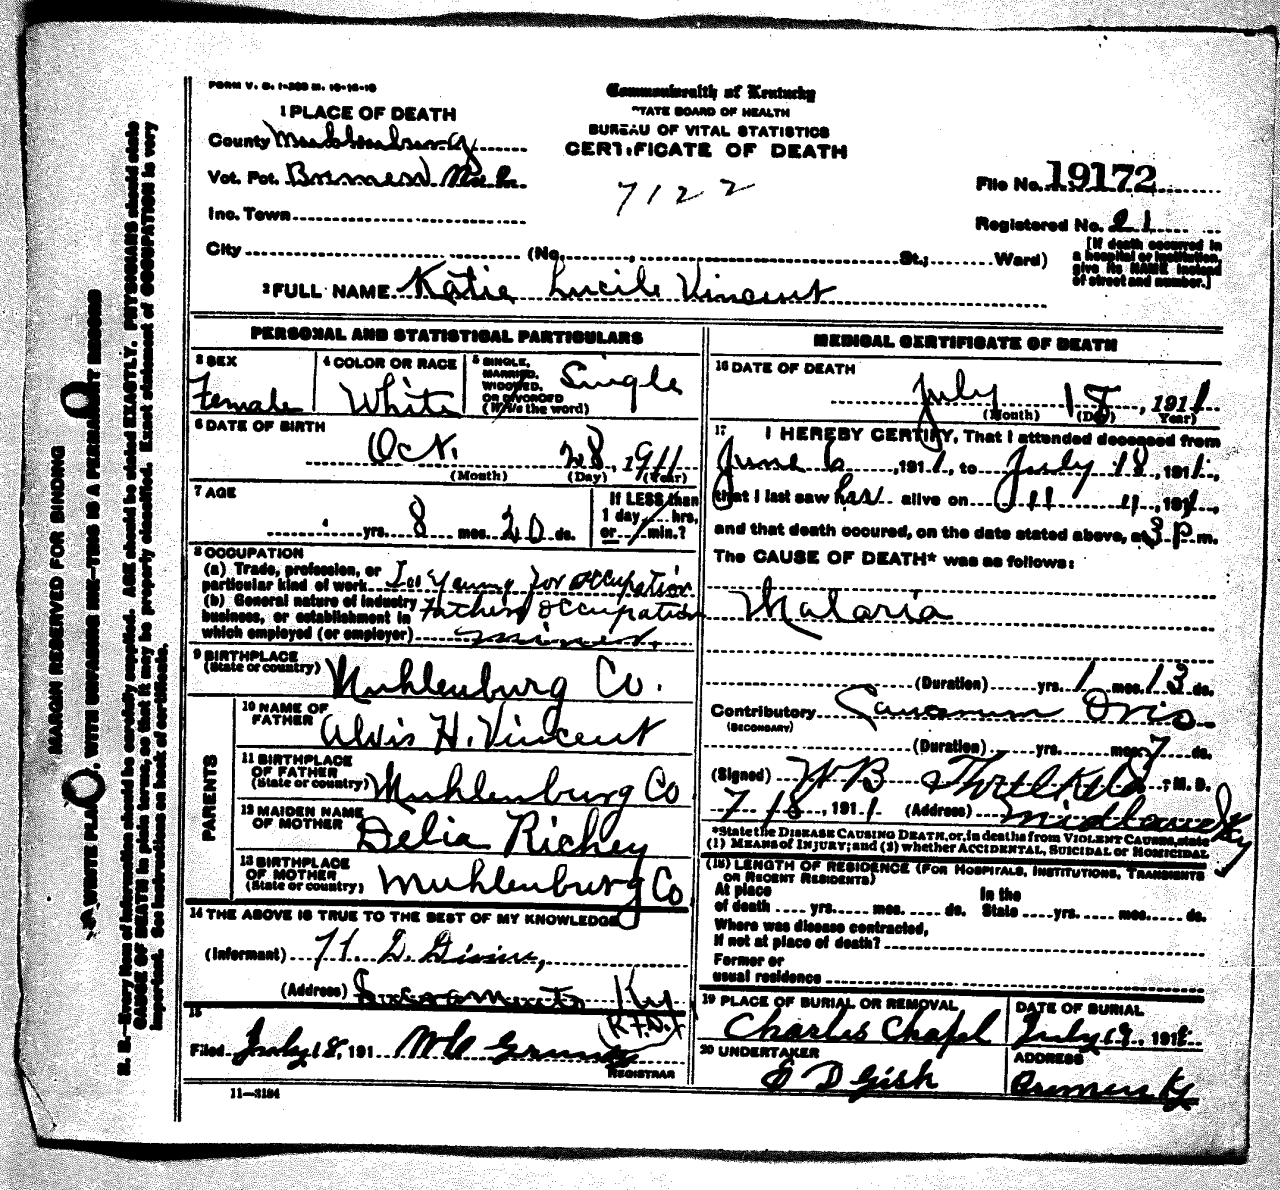 FORM V. S. 1-200 M. 10-14-10
Commonwealth of Kentucky
STATE BOARD OF HEALTH
BUREAU OF VITAL STATISTICS
CERTIFICATE OF DEATH
1 PLACE OF DEATH
County Muhlenburg
Vot. Pct. Bremen
Inc. Town
City (No. , St.; Ward)
7122
File No. 19172
Registered No. 21
[If death occurred in
a hospital or institution,
give its NAME instead
of street and number.]
2 FULL NAME Katie Lucile Vincent
PERSONAL AND STATISTICAL PARTICULARS
3 SEX
Female
4 COLOR OR RACE
White
5 SINGLE,
MARRIED,
WIDOWED,
OR DIVORCED
(Write the word)
Single
6 DATE OF BIRTH
Oct. 28, 1911
(Month) (Day) (Year)
7 AGE
yrs. 8 mos. 20 ds.
If LESS than
1 day, hrs,
or min.?
8 OCCUPATION
(a) Trade, profession, or
particular kind of work Too Young for occupation
(b) General nature of industry
business, or establishment in
which employed (or employer)
Fathers occupation
miner.
9 BIRTHPLACE
(State or country) Muhlenburg Co.
PARENTS
10 NAME OF
FATHER Alvis H. Vincent
11 BIRTHPLACE
OF FATHER
(State or country) Muhlenburg Co
12 MAIDEN NAME
OF MOTHER Delia Richey
13 BIRTHPLACE
OF MOTHER
(State or country) Muhlenburg Co
14 THE ABOVE IS TRUE TO THE BEST OF MY KNOWLEDGE
(Informant) H. D.
(Address) Sacramento Ky
R.F.D.1
15
Filed July 18, 191
REGISTRAR
11—3184
MEDICAL CERTIFICATE OF DEATH
16 DATE OF DEATH
July 18, 1911
(Month) (Day) Year)
17 I HEREBY CERTIFY, That I attended deceased from
June 6, 1911, to July 18, 1911,
that I last saw her alive on 11 11, 191,
and that death occured, on the date stated above, at 3 P. m.
The CAUSE OF DEATH* was as follows:
Malaria
(Duration) yrs. 1 mos. 13 ds.
Contributory Oris
(SECONDARY)
(Duration) yrs. mos. 7 ds.
(Signed) W B Threlkeld, M. D.
7 18, 1911 (Address) Midland Ky
*State the DISEASE CAUSING DEATH, or, in deaths from VIOLENT CAUSES, state
(1) MEANS OF INJURY; and (2) whether ACCIDENTAL, SUICIDAL or HOMICIDAL
(18) LENGTH OF RESIDENCE (FOR HOSPITALS, INSTITUTIONS, TRANSIENTS
OR RECENT RESIDENTS)
At place
of death yrs. mos. ds.
In the
State yrs. mos. ds.
Where was disease contracted,
if not at place of death?
Former or
usual residence
19 PLACE OF BURIAL OR REMOVAL
Charles Chapel
DATE OF BURIAL
July 19, 191
20 UNDERTAKER
E D Gish
ADDRESS
Bremen Ky
MARGIN RESERVED FOR BINDING
WRITE PLAINLY, WITH UNFADING INK—THIS IS A PERMANENT RECORD
N. B.—Every item of information should be carefully supplied. AGE should be stated EXACTLY. PHYSICIANS should state
CAUSE OF DEATH in plain terms, so that it may be properly classified. Exact statement of OCCUPATION is very
important. See instructions on back of certificate.